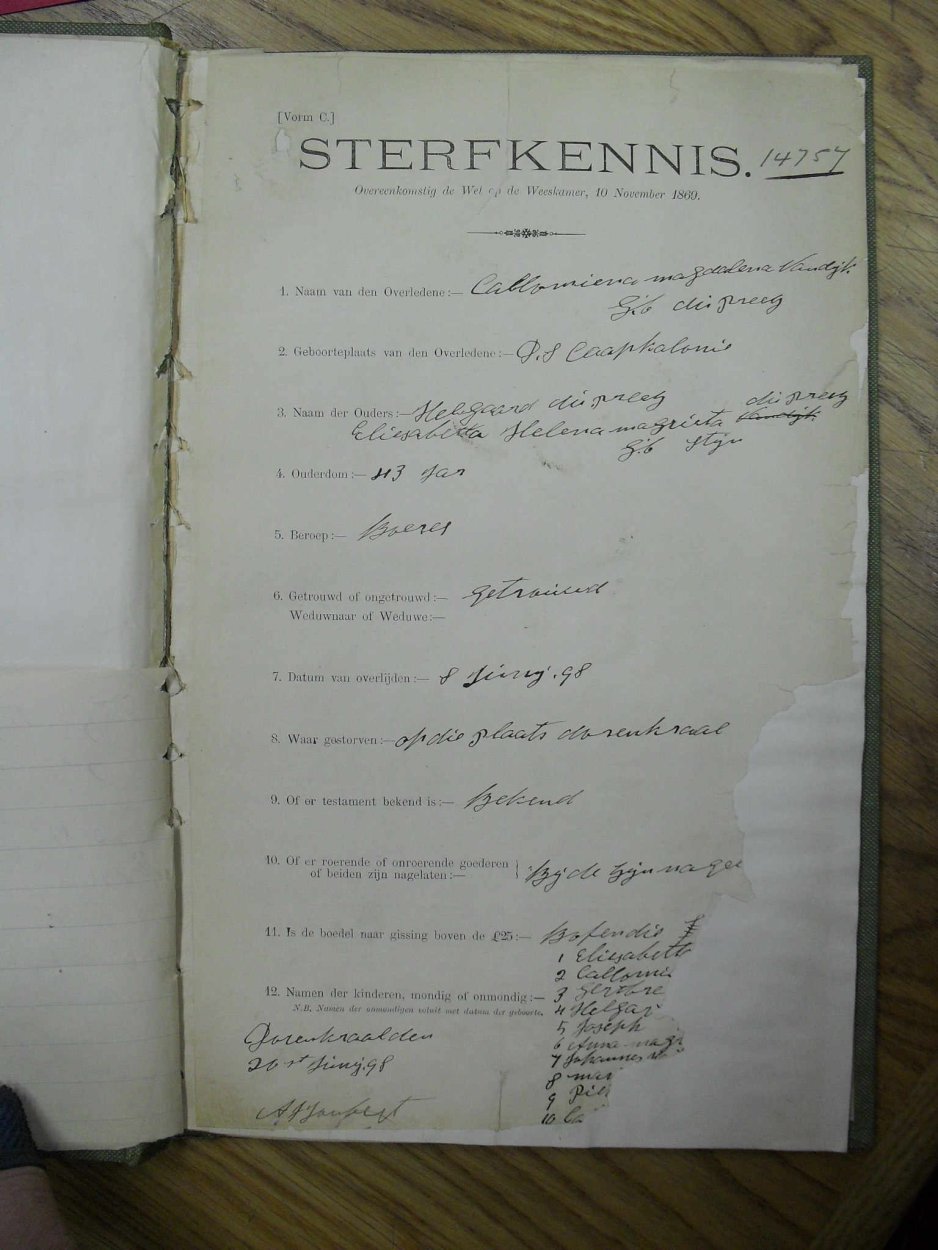 [Vorm C.]
STERFKENNIS. 14757
Overeenkomstig de Wet op de Weeskamer, 10 November 1869.
1. Naam van den Overledene:— Callomiena magdalena Vandijk
G:b du preez
2. Geboorteplaats van den Overledene:— D.S Caapkalonie
3. Naam der Ouders:— Helgaard du preez
Eliesabetta Helena magrieta Vandijk du preez
G:b Stijn
4. Ouderdom:— 43 Jar
5. Beroep:— Boeres
6. Getrouwd of ongetrouwd:— getrouwd
Weduwnaar of Weduwe:—
7. Datum van overlijden:— 8 Junij. 98
8. Waar gestorven:— op die plaats dorenkraal
9. Of er testament bekend is:— Bekend
10. Of er roerende of onroerende goederen
of beiden zijn nagelaten:— Bijde Zijn nagel
11. Is de boedel naar gissing boven de £25:— Bofendie £
1 Eliesabett
2 Callomie
12. Namen der kinderen, mondig of onmondig:— 3
N.B. Namen der onmondigen voluit met datum der geboorte. 4 Helgar
5 Joseph
Dorenkraal den 6 Anna magr
20st Junij. 98 7 Johannes
8 mar
9 Piet
10 Ca